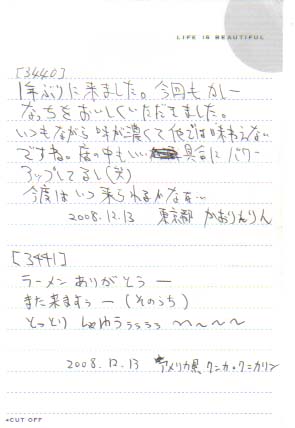 LIFE IS BEAUTIFUL
[3440]
1年ぶりに来ました。今回もカレー
なっちをおいしくいただきました。
いつもながら味が濃くて他では味わえない
ですね。店の中もいい具合にパワー
アップしてるし(笑)
今度はいつ来られるかなぁ…
2008.12.13 東京都 かおりんりん
[3441]
ラーメン ありがとう ー
また来ますぅ ー (そのうち)
とっとり しょゆうぅぅぅぅ 〜〜〜〜
2008.12.13 アメリカ県 クニカ・クニカリン
CUT OFF